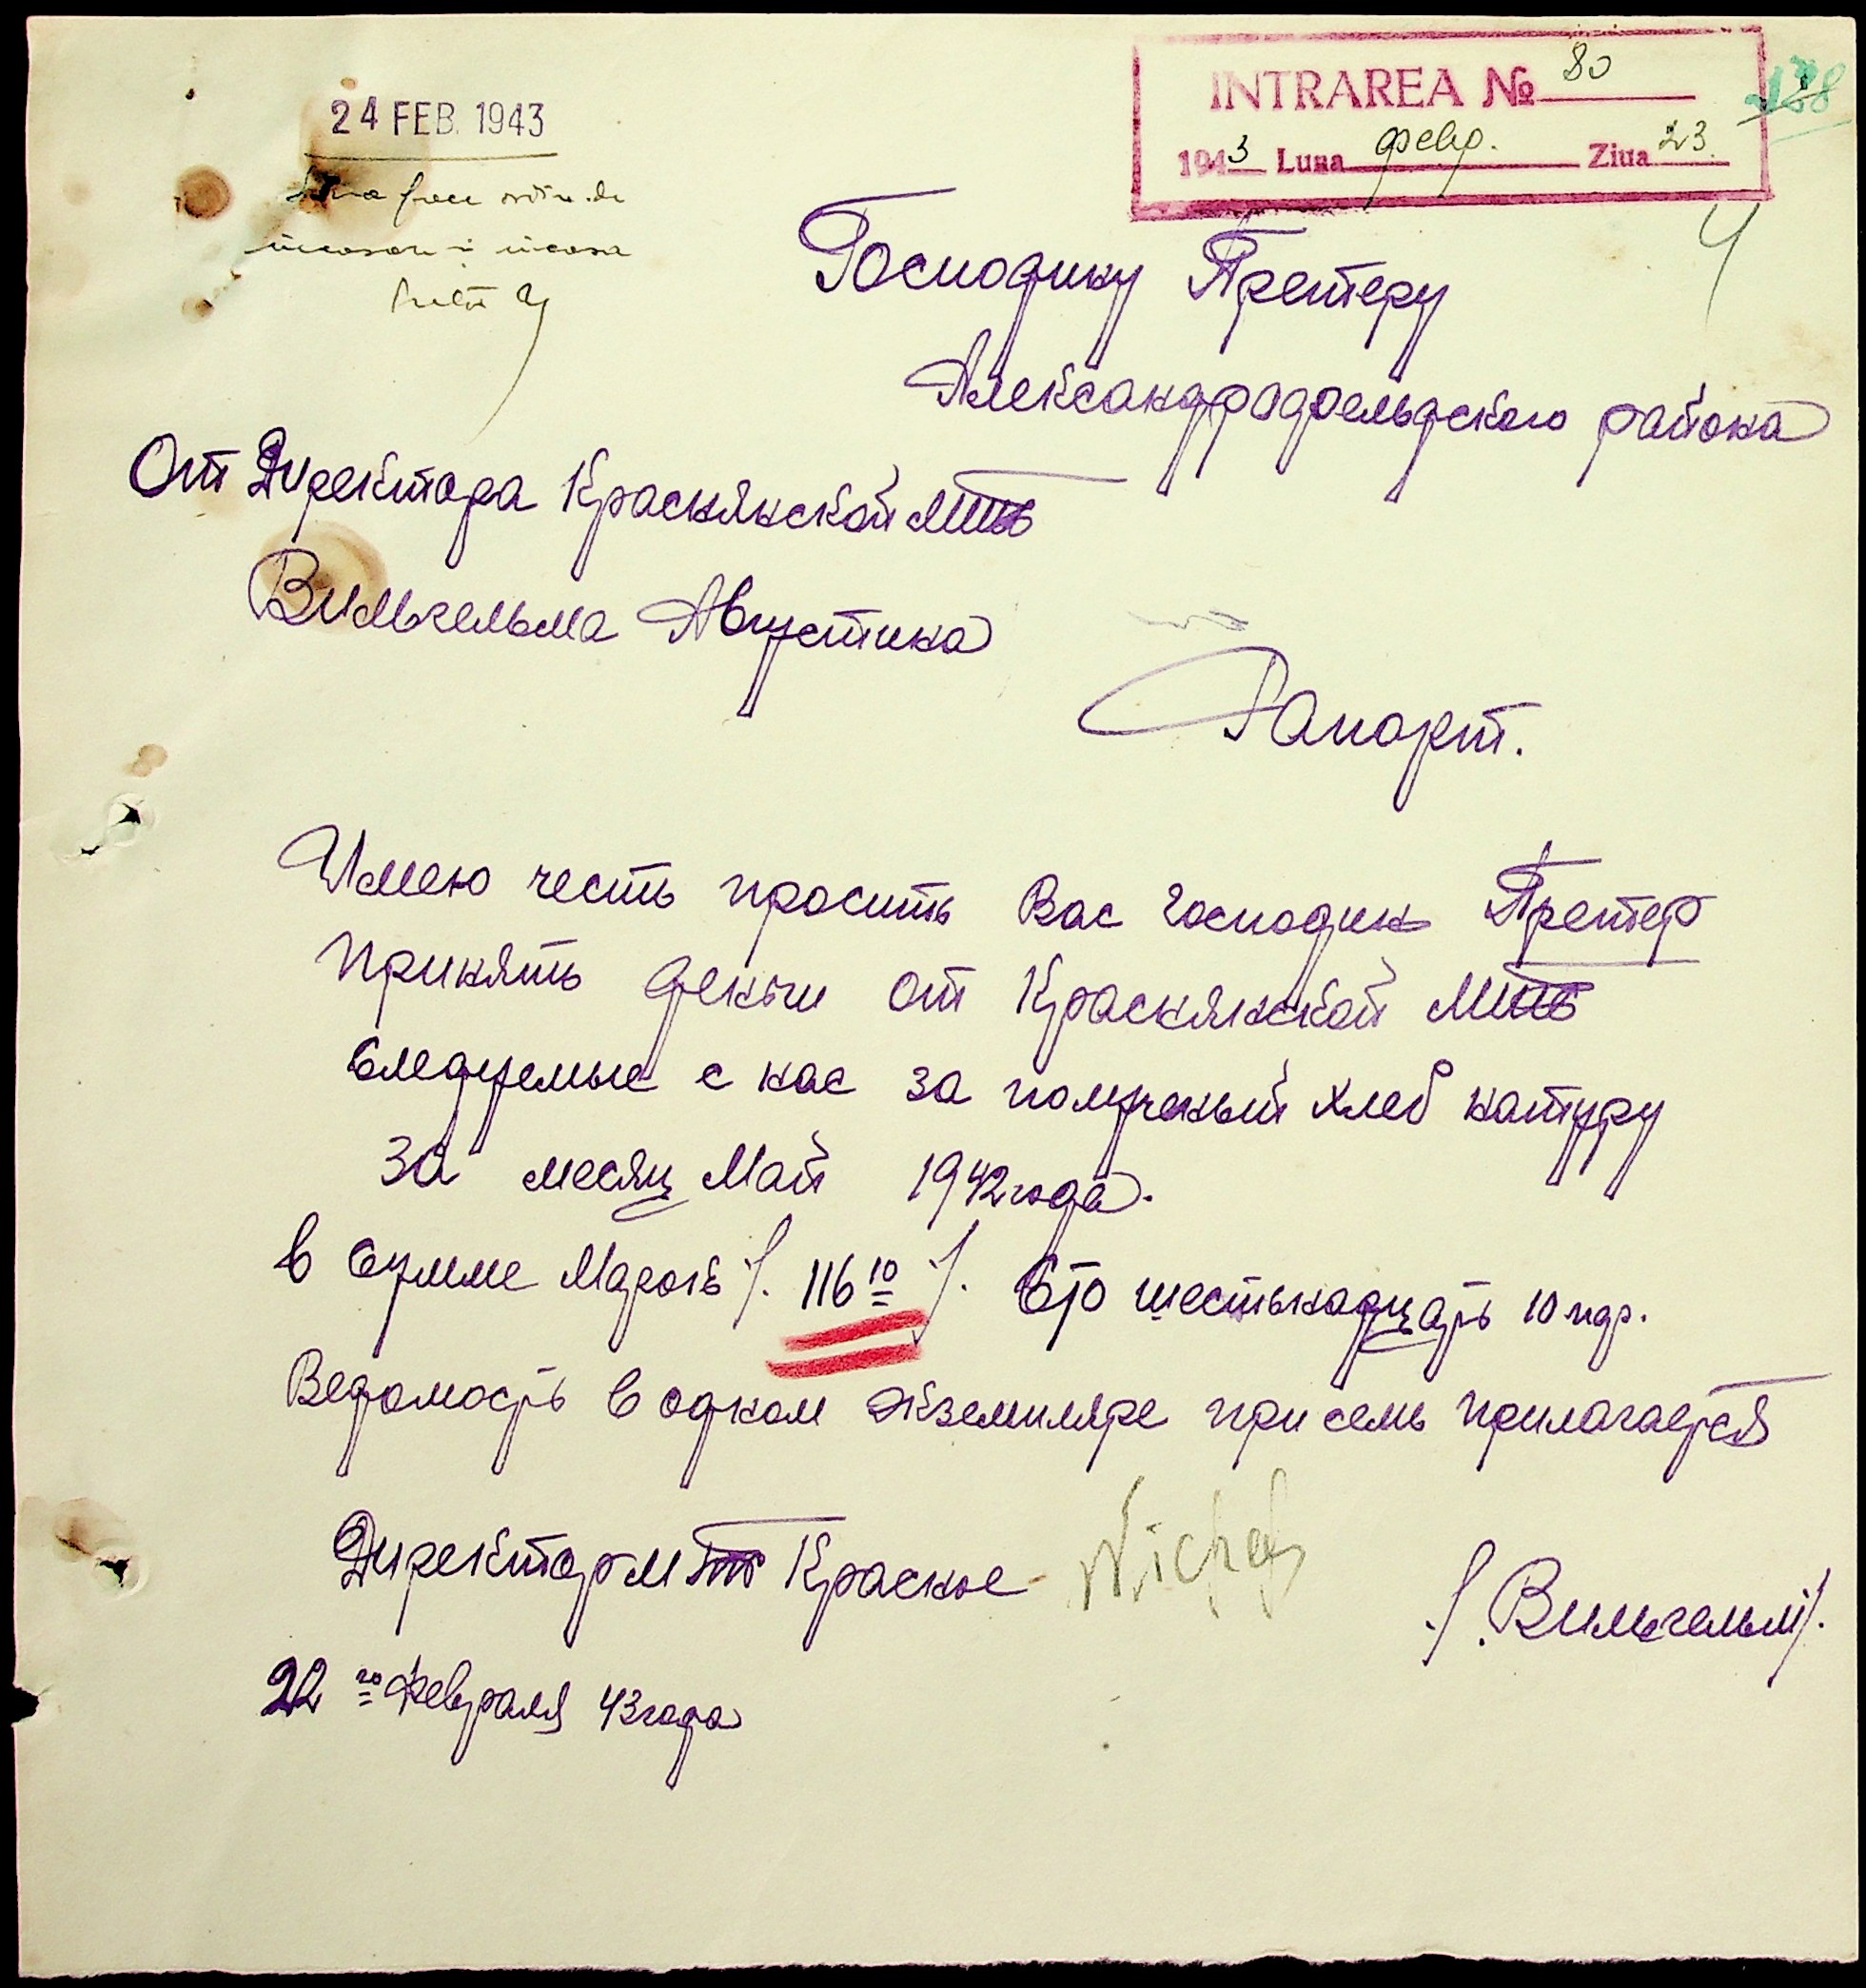 INTRAREA № 80
1943 Luna февр. Ziua 23.
128
24 FEB. 1943
4
Господину Претору
Александрфельдского района
От Директора Краснянской МТС
Вильгельма Августина
Рапорт.
Имею честь просить Вас Господин Претор
принять деньги от Краснянской МТС
следуемые с нас за полученый хлеб натуру
за месяц Май 1942 года.
в сумме Марок /. 116 10 /. Сто шестьнадцать 10 пф.
Ведомость в одном экземпляре при семь прилагается
Директор МТС Красное
/. Вильгельм/.
22 го Февраля 43 года